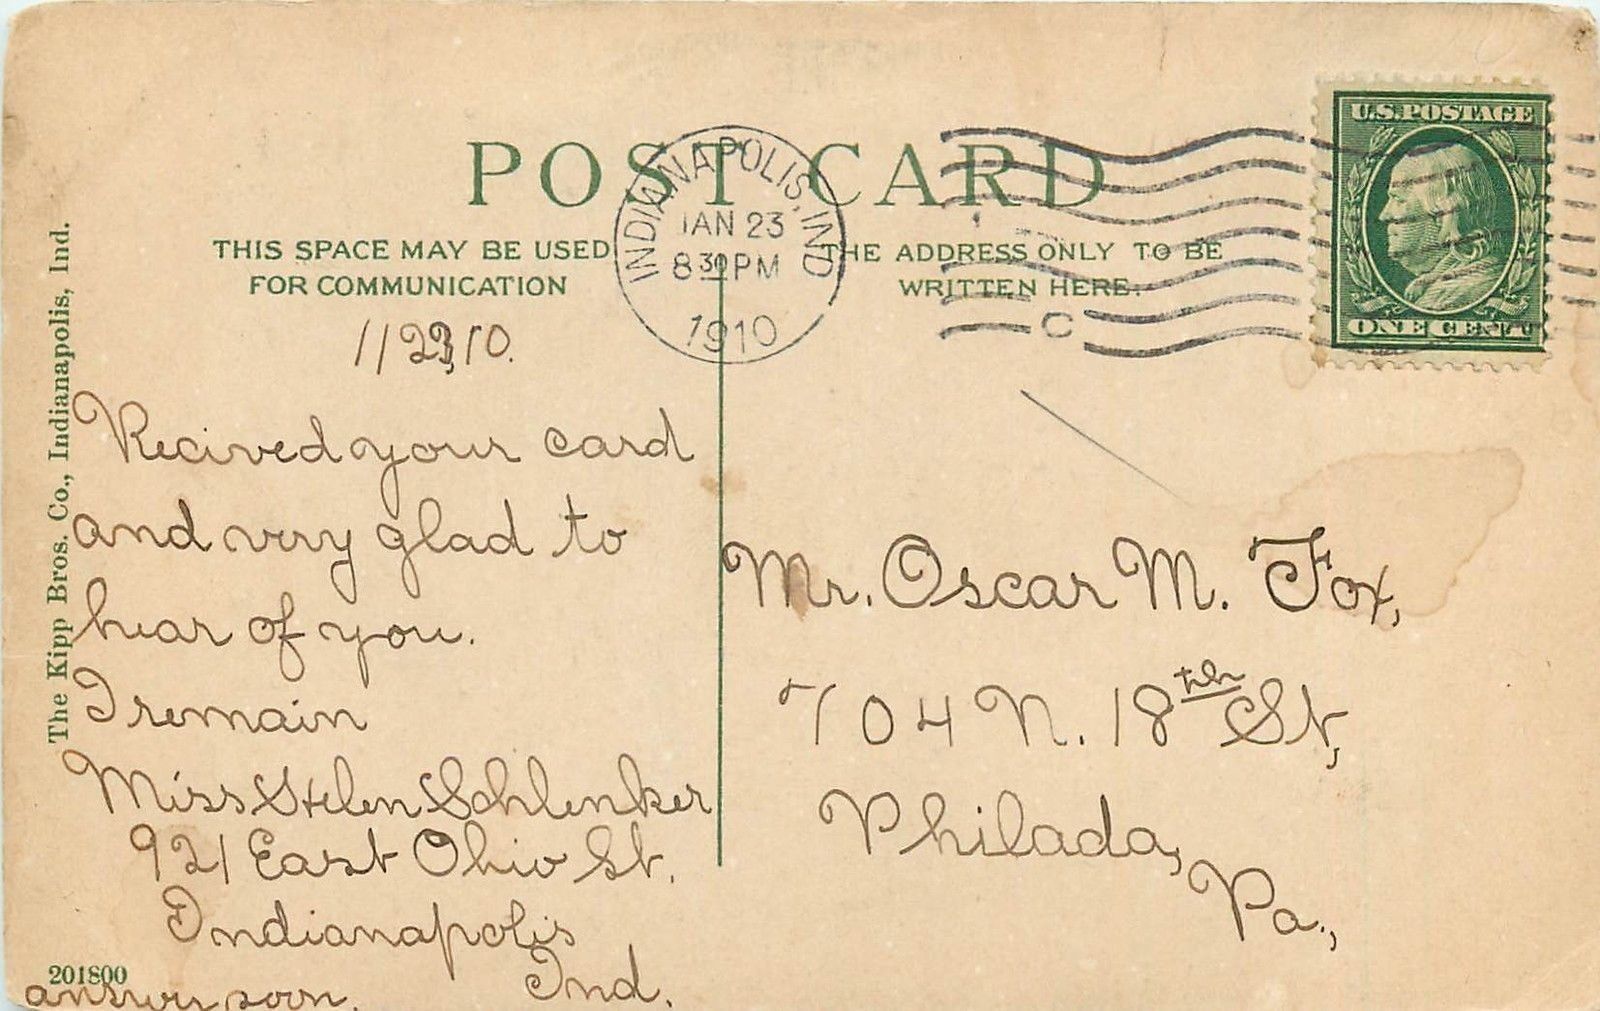 POST CARD
THIS SPACE MAY BE USED
FOR COMMUNICATION
THE ADDRESS ONLY TO BE
WRITTEN HERE.
INDIANAPOLIS, IND
JAN 23
8 30 PM
1910
C
U.S. POSTAGE
ONE CENT
The Kipp Bros. Co., Indianapolis, Ind.
1/23/10.
Recived your card
and very glad to
hear of you.
I remain
Miss Helen Schlenker
921 East Ohio St.
Indianapolis
Ind.
201800
answer soon.
Mr. Oscar M. Fox,
704 N. 18th St,
Philada,
Pa.,